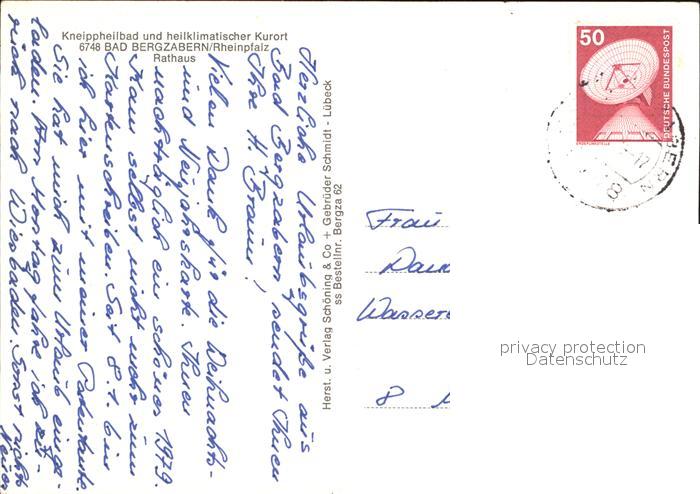 Kneippheilbad und heilklimatischer Kurort
6748 BAD BERGZABERN/Rheinpfalz
Rathaus
Herzliche Urlaubsgrüße aus
Bad Bergzabern sendet Ihnen
Ihre H. Braun!
Vielen Dank für die Weihnachts-
und Neujahrskarte. Ihnen
nachträglich ein schönes 1979.
Kam selbst nicht mehr zum
Kartenschreiben. Seit 8.1. bin
ich hier mit meiner Patentante.
Sie hat mich zum Urlaub einge-
laden. Am Montag fahre ich zu-
rück nach Wiesbaden. Sonst nichts
Neues
Herst. u. Verlag Schöning & Co + Gebrüder Schmidt - Lübeck
ss Bestellnr. Bergza 62
50
DEUTSCHE BUNDESPOST
ERDEFUNKSTELLE
Frau
Wassere
8
privacy protection
Datenschutz